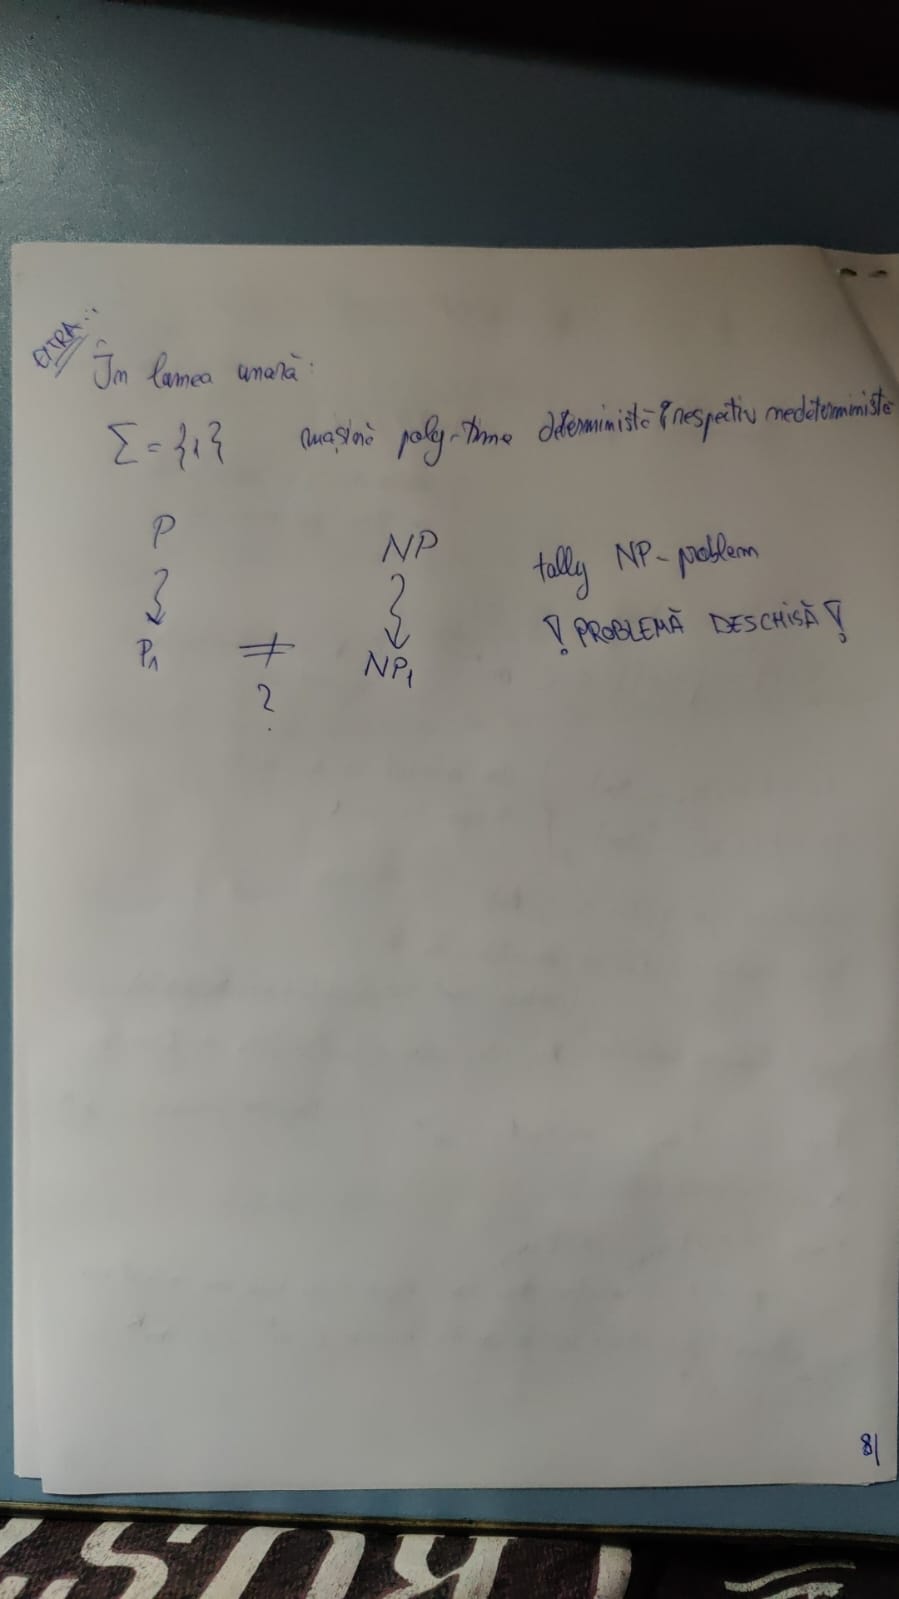 EXTRA:
În lumea unară:
Σ = {1} mașină poly-time deterministă & respectiv nedeterministă
P NP tally NP-problem
! PROBLEMĂ DESCHISĂ !
P₁ ≠ NP₁
?
8